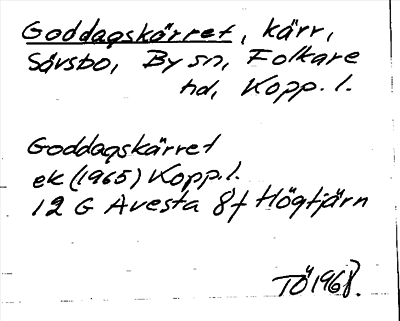 Goddagskärret, kärr,
Sävsbo, By sn, Folkare
hd, Kopp. l.
Goddagskärret
ek (1965) Kopp. l.
12 G Avesta 8f Högtjärn
TÖ 1968.